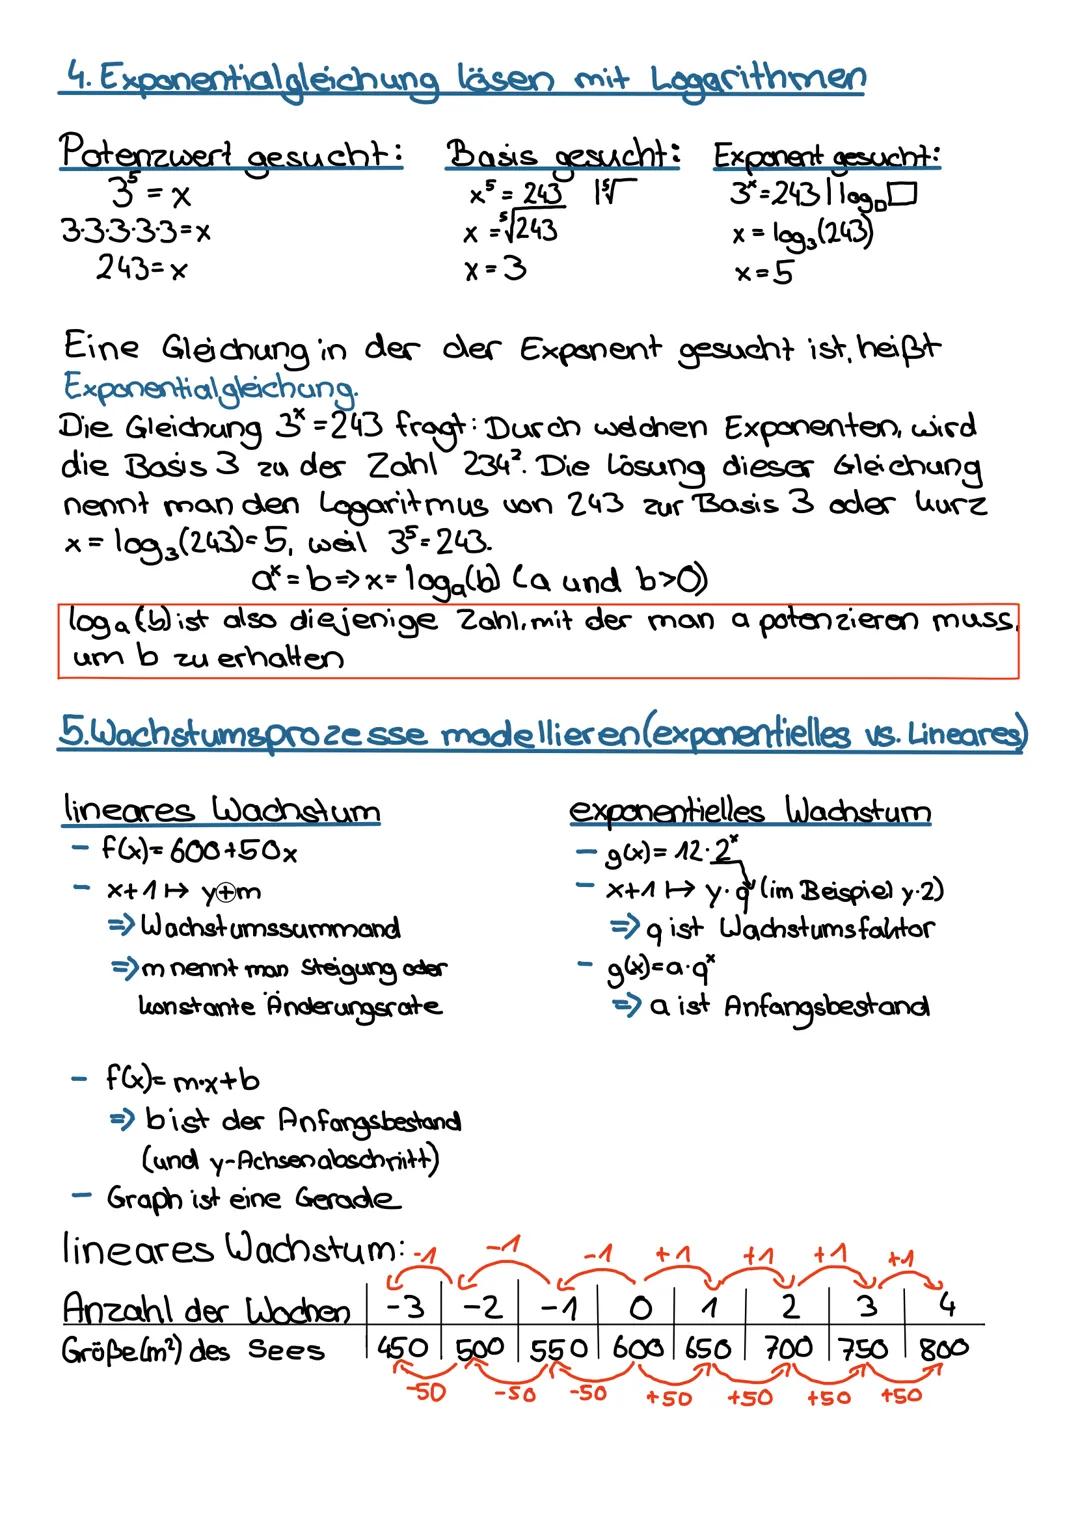 4. Exponentialgleichung lösen mit Logarithmen
Potenzwert gesucht: Basis gesucht: Exponent gesucht:
3⁵ = x x⁵ = 243 |⁵√ 3ˣ=243 | log□□
3·3·3·3·3=x x = ⁵√243 x = log₃(243)
243=x x=3 x=5
Eine Gleichung in der der Exponent gesucht ist, heißt
Exponentialgleichung.
Die Gleichung 3ˣ=243 fragt: Durch welchen Exponenten, wird
die Basis 3 zu der Zahl 234?. Die Lösung dieser Gleichung
nennt man den Logaritmus von 243 zur Basis 3 oder kurz
x = log₃(243)=5, weil 3⁵=243.
aˣ = b => x = logₐ(b) (a und b>0)
logₐ(b) ist also diejenige Zahl, mit der man a potenzieren muss,
um b zu erhalten
5. Wachstumsprozesse modellieren (exponentielles vs. Lineares)
lineares Wachstum exponentielles Wachstum
- f(x)= 600+50x - g(x)= 12·2ˣ
- x+1 ↦ y⊕m - x+1 ↦ y·q (im Beispiel y·2)
=> Wachstumssummand => q ist Wachstumsfaktor
=> m nennt man Steigung oder - g(x)=a·qˣ
konstante Änderungsrate => a ist Anfangsbestand
- f(x)= m·x+b
=> b ist der Anfangsbestand
(und y-Achsenabschnitt)
- Graph ist eine Gerade
lineares Wachstum: -1 -1 -1 +1 +1 +1 +1
Anzahl der Wochen | -3 | -2 | -1 | 0 | 1 | 2 | 3 | 4
Größe (m²) des Sees | 450 | 500 | 550 | 600 | 650 | 700 | 750 | 800
-50 -50 -50 +50 +50 +50 +50